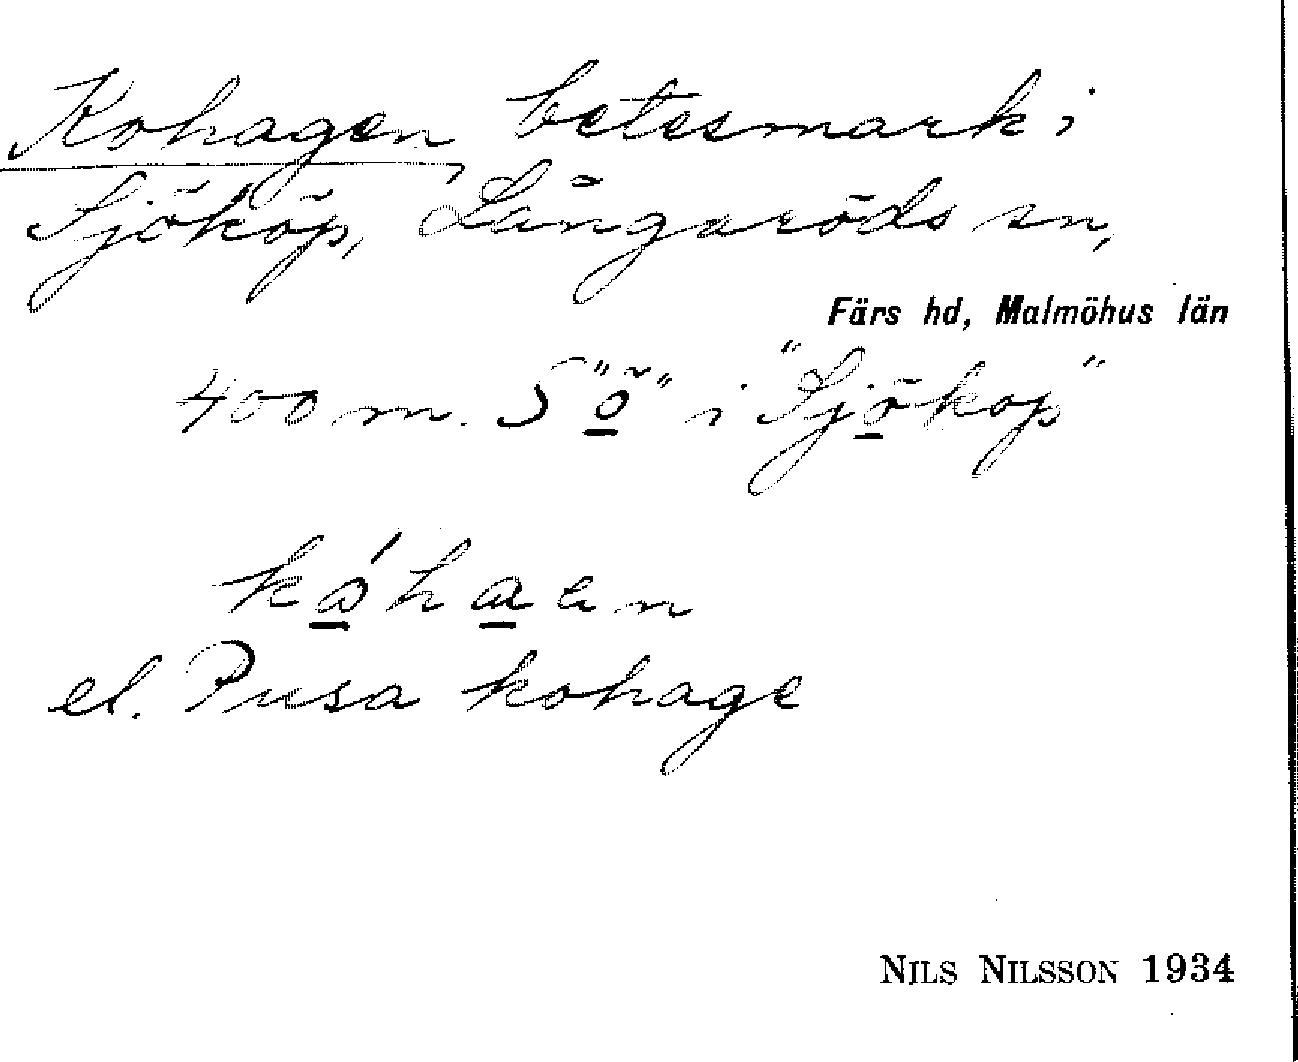 Kohagen, betesmark i
Sjököp, Långaröds sn,
Färs hd, Malmöhus län
400 m. S "ö" i "Sjökop"
el. Pusa kohage
NILS NILSSON 1934